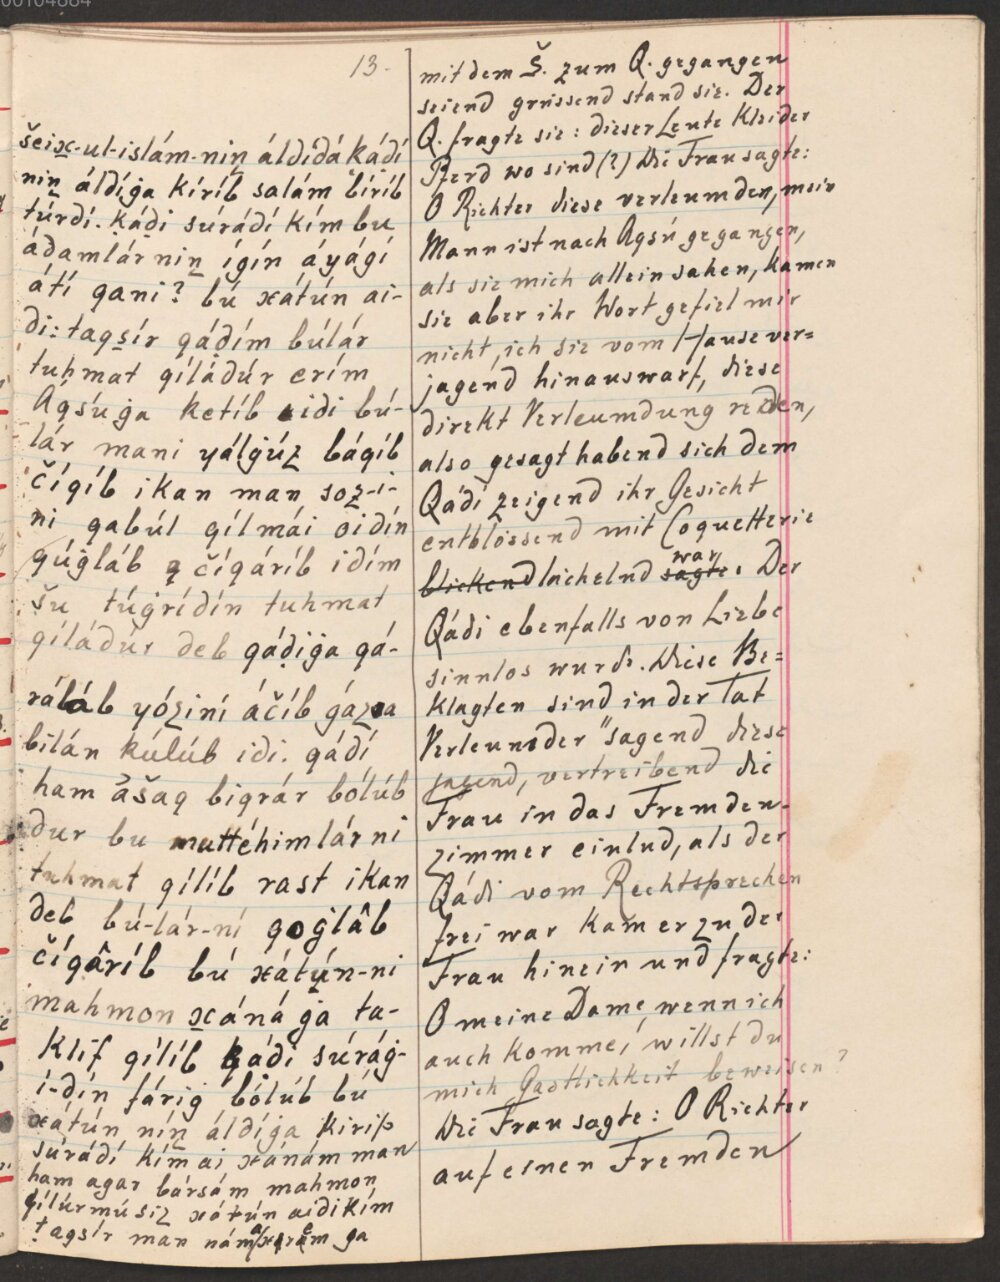 13.
šeix-ul-islám-niṉ áldídá kádí
niṉ áldíġa kíríb salám bíríb
túrdí. kádi súrádí kím bu
ádamlárniṉ ígín áyágí
átí qani? bú xátún ai-
di: taqsír qádím búlár
tuhmat qíládúr erím
Áqsúġa ketíb aidi bú-
lár mani yálġúz báqíb
číqíb ikan man soz-i-
ni qabúl qílmái oidín
qúġláb číqáríb idím
šu túġrídín tuhmat
qíládúr deb qádiġa qá-
ráláb yóziní áčíb ġáza
bilán kúlúb idi. qádí
ham ášaq biqrár bólúb
dur bu muttéhimlárni
tuhmat qílíb rast ikan
deb bú-lár-ní qoġlâb
číqâríb bú xátún-ni
mahmon xáná ġa ta-
klíf qílíb kádi súráġ-
í-dín fárig bólúb bú
xátún níṉ áldíġa kirip
súrádí kím ai xanám man
ham agar bársám mahmon
qílúrmúsiz xátún aidikím
taqsír man ġa
mit dem Š. zum Q. gegangen
seiend grüssend stand sie. Der
Q. fragte sie: dieser Leute Kleider
Pferd wo sind (?) Die Frau sagte:
O Richter diese verleumden, mein
Mann ist nach Aqsú gegangen,
als sie mich allein sahen, kamen
sie aber ihr Wort gefiel mir
nicht, ich sie vom Hause ver=
jagend hinauswarf, diese
direkt Verleumdung reden,
also gesagt habend sich dem
Qádí zeigend ihr Gesicht
entblössend mit Coquetterie
blickend lächelnd sagte war. Der
Qádi ebenfalls von Liebe
sinnlos wurde. Diese Be=
klagten sind in der Tat
Verleumder" sagend diese
jagend, vertreibend die
Frau in das Fremden-
zimmer einlud, als der
Qádi vom Rechtsprechen
frei war kam er zu der
Frau hinein und fragte:
O meine Dame, wenn ich
auch komme, willst du
mich Gastlichkeit beweisen?
Die Frau sagte: O Richter
auf einen Fremden